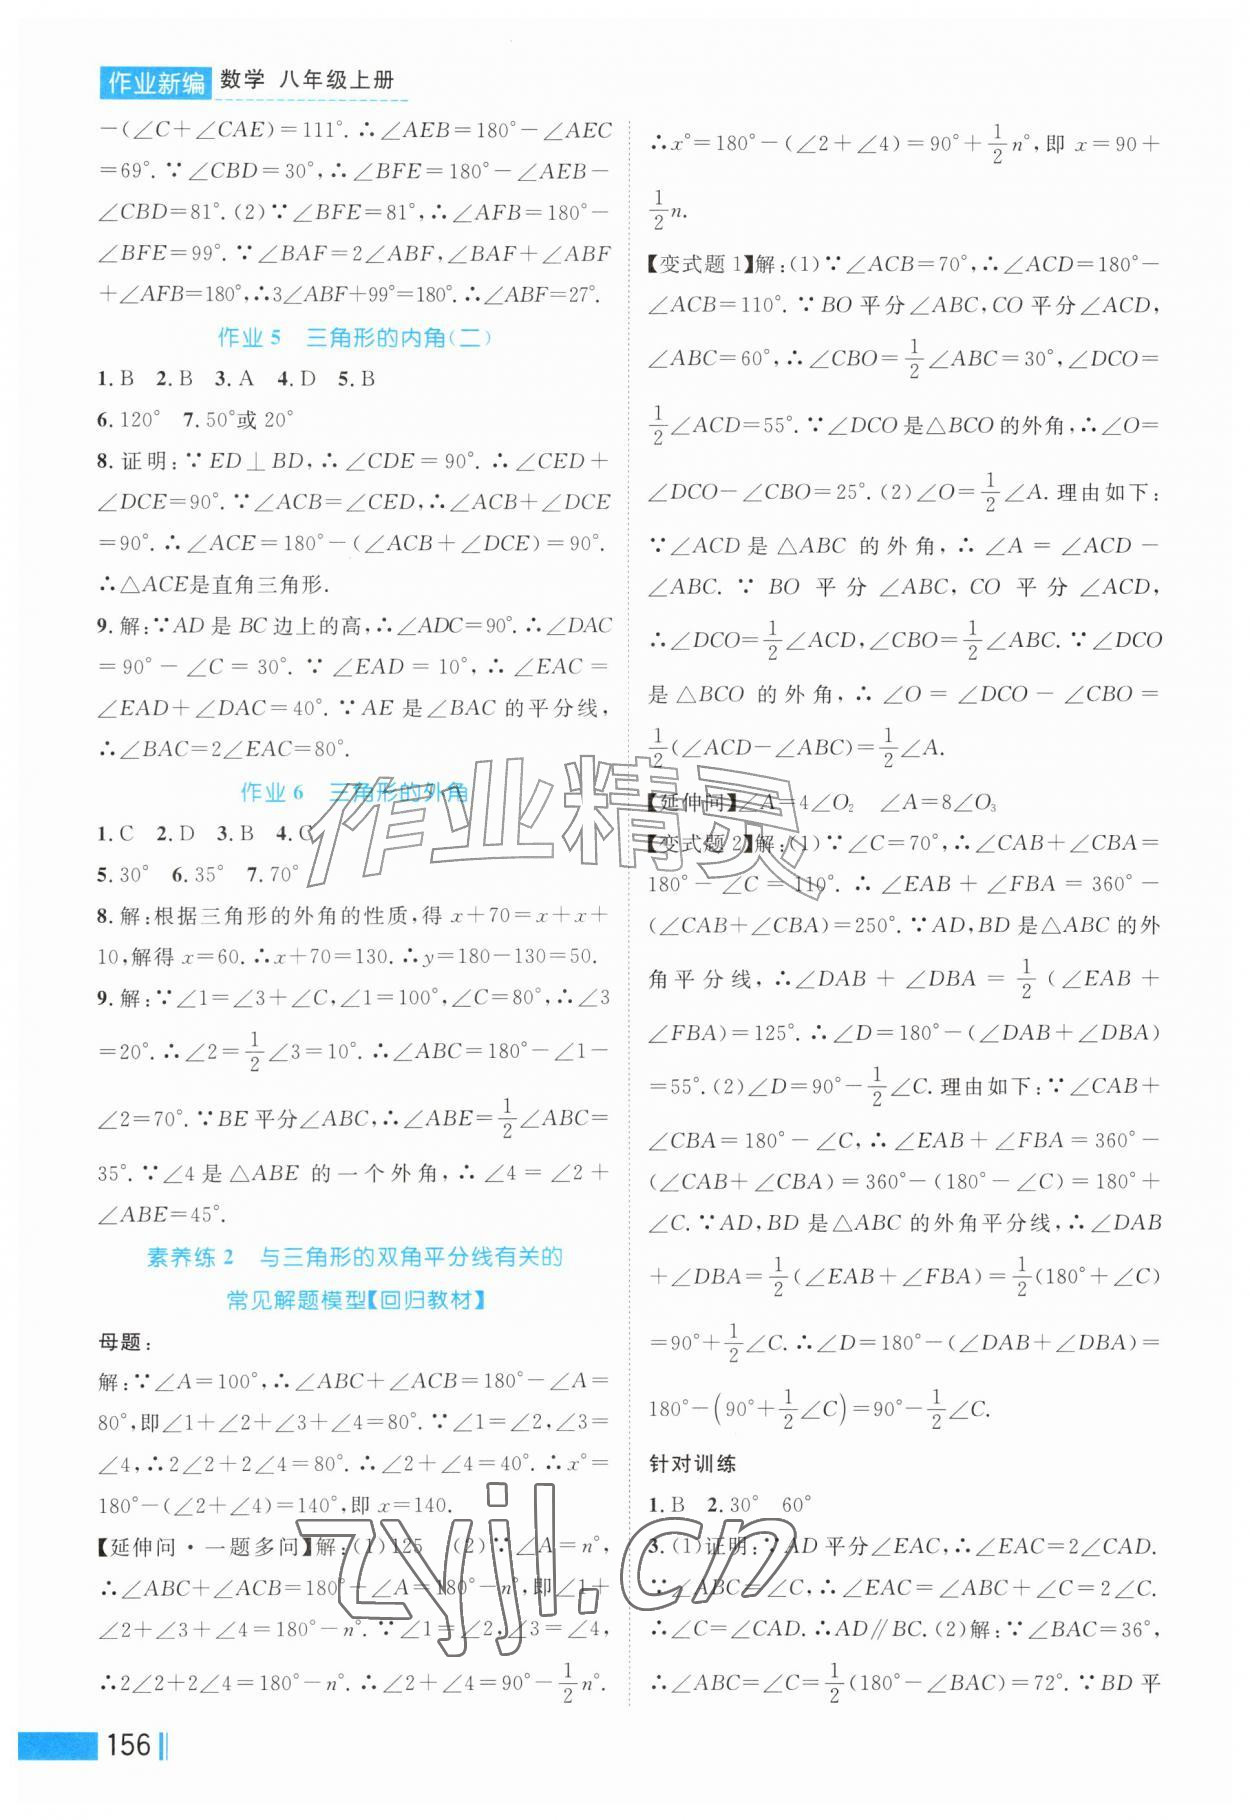 作业新编 数学 八年级上册
－(∠C＋∠CAE)＝111°.∴∠AEB＝180°－∠AEC
＝69°.∵∠CBD＝30°,∴∠BFE＝180°－∠AEB－
∠CBD＝81°.(2)∵∠BFE＝81°,∴∠AFB＝180°－
∠BFE＝99°.∵∠BAF＝2∠ABF,∠BAF＋∠ABF
＋∠AFB＝180°,∴3∠ABF＋99°＝180°.∴∠ABF＝27°.
作业 5 三角形的内角(二)
1.B 2.B 3.A 4.D 5.B
6.120° 7.50°或 20°
8.证明:∵ED⊥BD,∴∠CDE＝90°.∴∠CED＋
∠DCE＝90°.∵∠ACB＝∠CED,∴∠ACB＋∠DCE
＝90°.∴∠ACE＝180°－(∠ACB＋∠DCE)＝90°.
∴△ACE是直角三角形.
9.解:∵AD 是 BC 边上的高,∴∠ADC＝90°.∴∠DAC
＝90°－∠C＝30°.∵∠EAD＝10°,∴∠EAC＝
∠EAD＋∠DAC＝40°.∵AE 是∠BAC 的平分线,
∴∠BAC＝2∠EAC＝80°.
作业 6 三角形的外角
1.C 2.D 3.B 4.C
5.30° 6.35° 7.70°
8.解:根据三角形的外角的性质,得 x＋70＝x＋x＋
10,解得 x＝60.∴x＋70＝130.∴y＝180－130＝50.
9.解:∵∠1＝∠3＋∠C,∠1＝100°,∠C＝80°,∴∠3
＝20°.∴∠2＝1/2∠3＝10°.∴∠ABC＝180°－∠1－
∠2＝70°.∵BE 平分∠ABC,∴∠ABE＝1/2∠ABC＝
35°.∵∠4 是△ABE 的一个外角,∴∠4＝∠2＋
∠ABE＝45°.
素养练 2 与三角形的双角平分线有关的
常见解题模型【回归教材】
母题:
解:∵∠A＝100°,∴∠ABC＋∠ACB＝180°－∠A＝
80°,即∠1＋∠2＋∠3＋∠4＝80°.∵∠1＝∠2,∠3＝
∠4,∴2∠2＋2∠4＝80°.∴∠2＋∠4＝40°.∴x°＝
180°－(∠2＋∠4)＝140°,即 x＝140.
【延伸问·一题多问】解:(1)125 (2)∵∠A＝n°,
∴∠ABC＋∠ACB＝180°－∠A＝180°－n°,即∠1＋
∠2＋∠3＋∠4＝180°－n°.∵∠1＝∠2,∠3＝∠4,
∴2∠2＋2∠4＝180°－n°.∴∠2＋∠4＝90°－1/2n°.
∴x°＝180°－(∠2＋∠4)＝90°＋1/2n°,即 x＝90＋
1/2n.
【变式题 1】解:(1)∵∠ACB＝70°,∴∠ACD＝180°－
∠ACB＝110°.∵BO 平分∠ABC,CO 平分∠ACD,
∠ABC＝60°,∴∠CBO＝1/2∠ABC＝30°,∠DCO＝
1/2∠ACD＝55°.∵∠DCO是△BCO的外角,∴∠O＝
∠DCO－∠CBO＝25°.(2)∠O＝1/2∠A.理由如下:
∵∠ACD是△ABC 的外角,∴∠A＝∠ACD－
∠ABC.∵BO 平分∠ABC,CO 平分∠ACD,
∴∠DCO＝1/2∠ACD,∠CBO＝1/2∠ABC.∵∠DCO
是△BCO 的外角,∴∠O＝∠DCO－∠CBO＝
1/2(∠ACD－∠ABC)＝1/2∠A.
【延伸问】∠A＝4∠O₂ ∠A＝8∠O₃
【变式题 2】解:(1)∵∠C＝70°,∴∠CAB＋∠CBA＝
180°－∠C＝110°.∴∠EAB＋∠FBA＝360°－
(∠CAB＋∠CBA)＝250°.∵AD,BD是△ABC的外
角平分线,∴∠DAB＋∠DBA＝1/2(∠EAB＋
∠FBA)＝125°.∴∠D＝180°－(∠DAB＋∠DBA)
＝55°.(2)∠D＝90°－1/2∠C.理由如下:∵∠CAB＋
∠CBA＝180°－∠C,∴∠EAB＋∠FBA＝360°－
(∠CAB＋∠CBA)＝360°－(180°－∠C)＝180°＋
∠C.∵AD,BD 是△ABC的外角平分线,∴∠DAB
＋∠DBA＝1/2(∠EAB＋∠FBA)＝1/2(180°＋∠C)
＝90°＋1/2∠C.∴∠D＝180°－(∠DAB＋∠DBA)＝
180°－(90°＋1/2∠C)＝90°－1/2∠C.
针对训练
1.B 2.30° 60°
3.(1)证明:∵AD 平分∠EAC,∴∠EAC＝2∠CAD.
∵∠ABC＝∠C,∴∠EAC＝∠ABC＋∠C＝2∠C.
∴∠C＝∠CAD.∴AD∥BC.(2)解:∵∠BAC＝36°,
∴∠ABC＝∠C＝1/2(180°－∠BAC)＝72°.∵BD 平
156
作业精灵
zyjl.cn